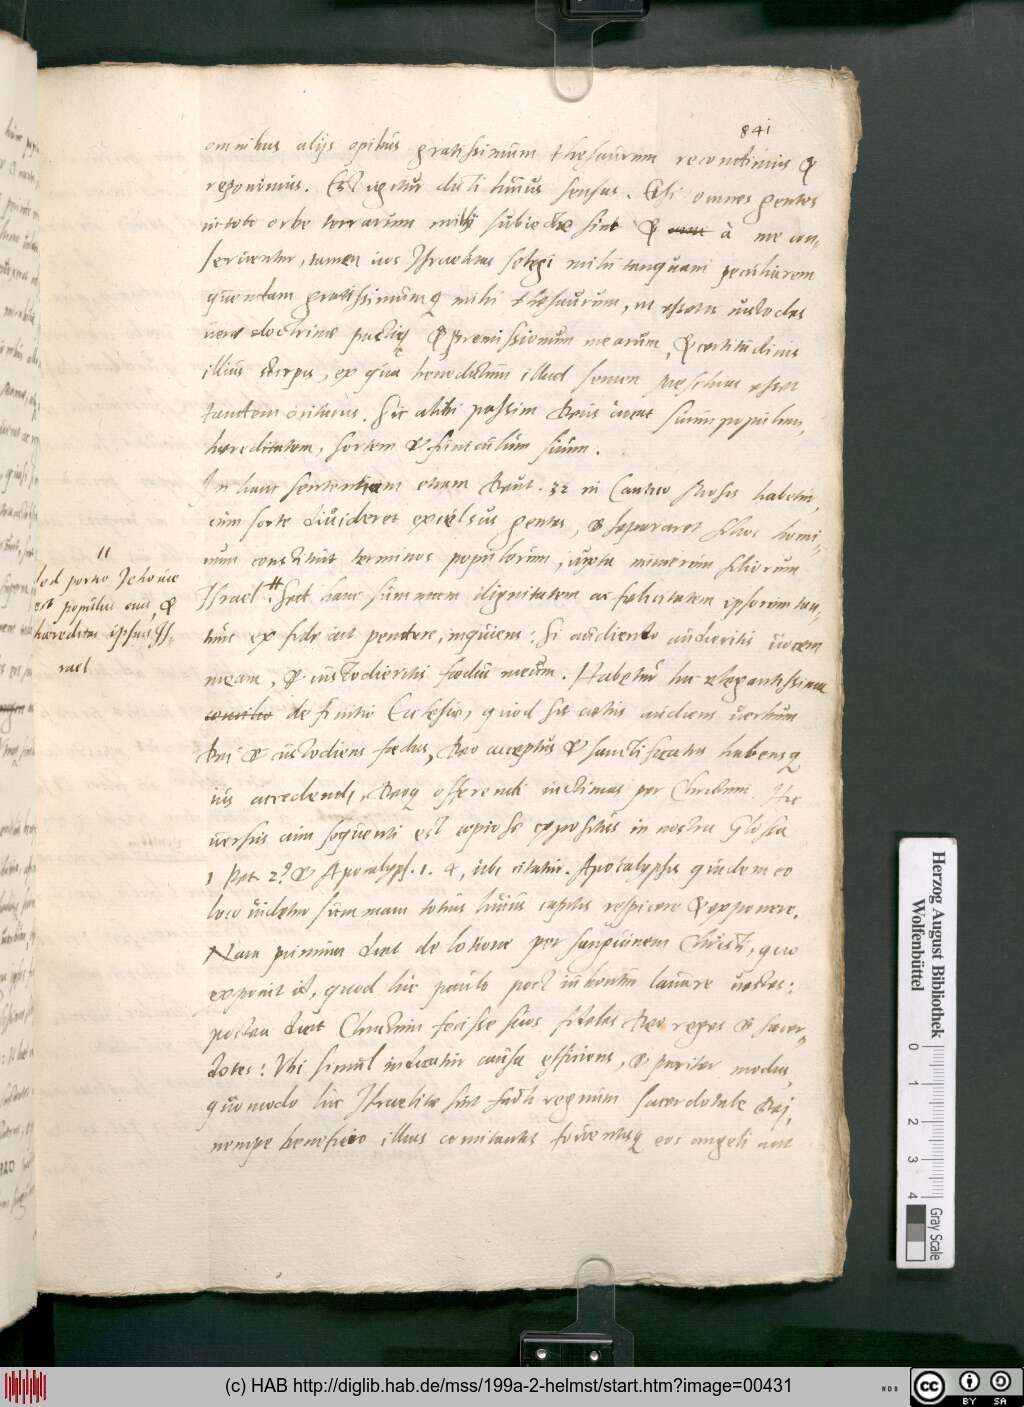 841
omnibus alijs opibus gratissimum thesaurum recondimus &
reponimus. Est igitur dicti huius sensus. Etsi omnes gentes
in toto orbe terrarum mihi subiectae sint & à me con-
serventur, tamen vos Israelitas selegi mihi tanquam peculiarem
quendam gratissimumq mihi thesaurum, ut essetis custodes
verae doctrinae pactiq & promissionum mearum, & certitudinis
illius stirpis, ex qua benedictum illud semen Meschias esset
tandem oriturus. Sic alibi passim Deus vocat suum populum,
haereditatem, sortem & funiculum suum.
In hanc sententiam etiam Deut. 32 in Cantico Mosis habetur,
cum sorte divideret excelsus gentes, & separaret filios homi-
num constituit terminos populorum, iuxta numerum filiorum
Israel. Sed hanc summam dignitatem ac felicitatem ipsorum tan-
tum ex fide ait pendere, inquiens: Si audiendo audieritis vocem
meam, & custodieritis foedus meum. Habetur hic elegantissima
definitio Ecclesiae, quod sit coetus audiens verbum
Dei & custodiens foedus, Deo acceptus & sanctificatus habensq
ius accedendi, Deoq offerendi victimas per Christum. Hic
versus cum sequenti est copiose expositus in nostra Glossa
1 Pet. 2. & Apocalyps. 1. &, ubi citatur. Apocalypsis quidem eo
loco videtur summam totius huius capitis respicere & exponere.
Nam primum dicit de lotione per sanguinem Christi, quo
exponit id, quod hic paulo post iubentur lavare vestes:
postea dicit Christum fecisse suos fideles Deo reges & sacer-
dotes: Ubi simul indicatur causa efficiens, & pariter modus,
quomodo hic Israelitae sint facti regnum sacerdotale Dei,
nempe beneficio illius comitantis foventisq eos angeli aut
sed portio Jehovae
est populus eius, &
haereditas ipsius Is-
rael
Herzog August Bibliothek
Wolfenbüttel
0 1 2 3 4
Gray Scale
(c) HAB http://diglib.hab.de/mss/199a-2-helmst/start.htm?image=00431
cc BY SA